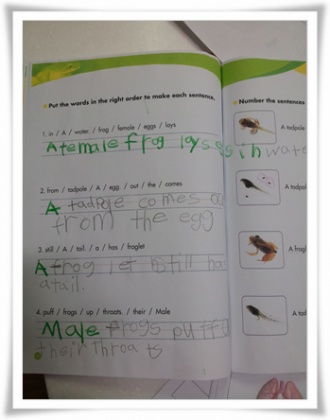 Put the words in the right order to make each sentence.
1. in / A / water / frog / female / eggs / lays
A female frog lays eggs in water
2. from / tadpole / A / egg / out / the / comes
A tadpole comes
from the egg
3. still / A / tail. / a / has / froglet
A frog let still has
a tail.
4. puff / frogs / up / throats. / their / Male
Male frogs puff
their throats
Number the sentences
A tadpole
A tadpol
A frogl
A tad